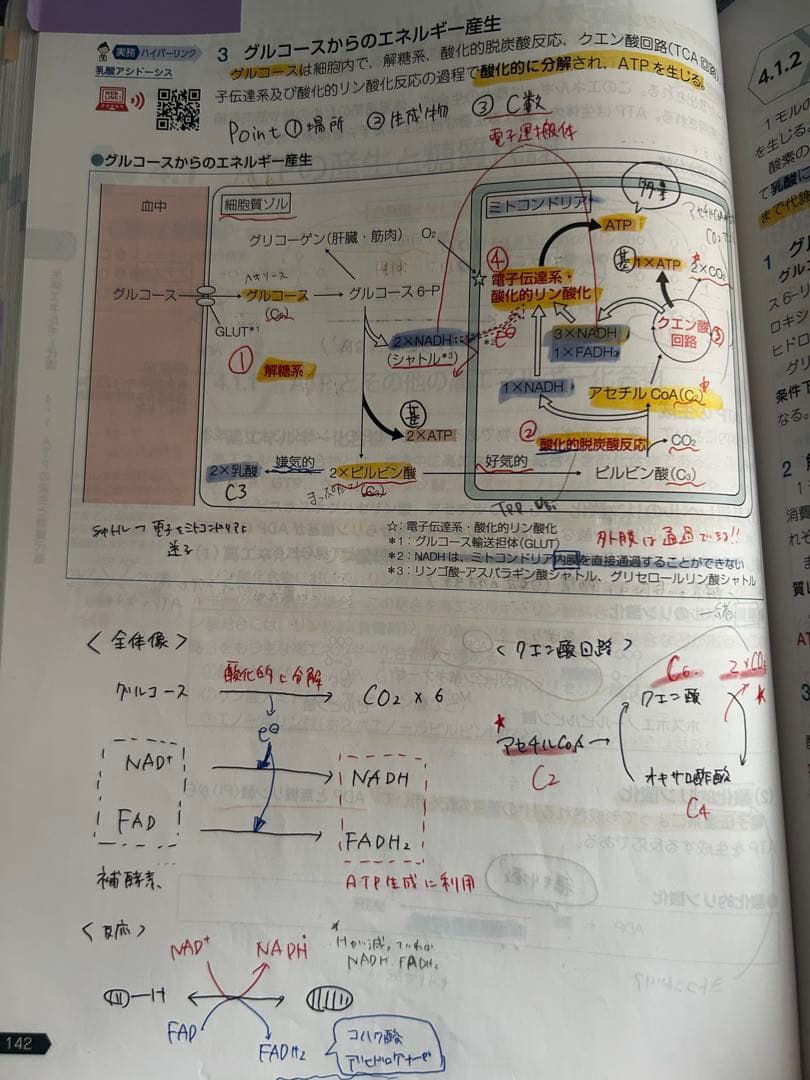 実務 ハイパーリンク
乳酸アシドーシス
3 グルコースからのエネルギー産生
グルコースは細胞内で、解糖系、酸化的脱炭酸反応、クエン酸回路(TCA回路)
子伝達系及び酸化的リン酸化反応の過程で酸化的に分解され、ATPを生じる。
Point ①場所 ②生成物 ③C数
電子運搬体
●グルコースからのエネルギー産生
血中
細胞質ゾル
ミトコンドリア
多量
ATP
グリコーゲン(肝臓・筋肉)
O₂
④
☆電子伝達系・
酸化的リン酸化
基 1×ATP
2×CO₂
グルコース
グルコース
(C₆)
グルコース 6-P
GLUT*¹
2×NADH
(シャトル*³)
*²
e⊖
3×NADH
1×FADH₂
クエン酸
回路
③
①
解糖系
1×NADH
アセチル CoA(C₂)
基
2×ATP
②
酸化的脱炭酸反応
CO₂
2×乳酸
C3
嫌気的
2×ピルビン酸
(C₃)
好気的
ピルビン酸(C₃)
シャトル → 電子をミトコンドリアに
送る
☆:電子伝達系・酸化的リン酸化
外膜は通過できる!!
*1:グルコース輸送担体(GLUT)
*2:NADHは、ミトコンドリア内膜を直接通過することができない
*3:リンゴ酸-アスパラギン酸シャトル、グリセロールリン酸シャトル
<全体像>
グルコース
酸化的に分解
CO₂ × 6
e⊖
NAD⁺
NADH
FAD
FADH₂
補酵素
ATP生成に利用
<クエン酸回路>
C₆
2×CO₂
クエン酸
*
アセチルCoA →
C₂
オキサロ酢酸
C₄
<反応>
NAD⁺
NADH
*
Hが減っていれば
NADH FADH₂
H
FAD
FADH₂
コハク酸
デヒドロゲナーゼ
142
4.1.2